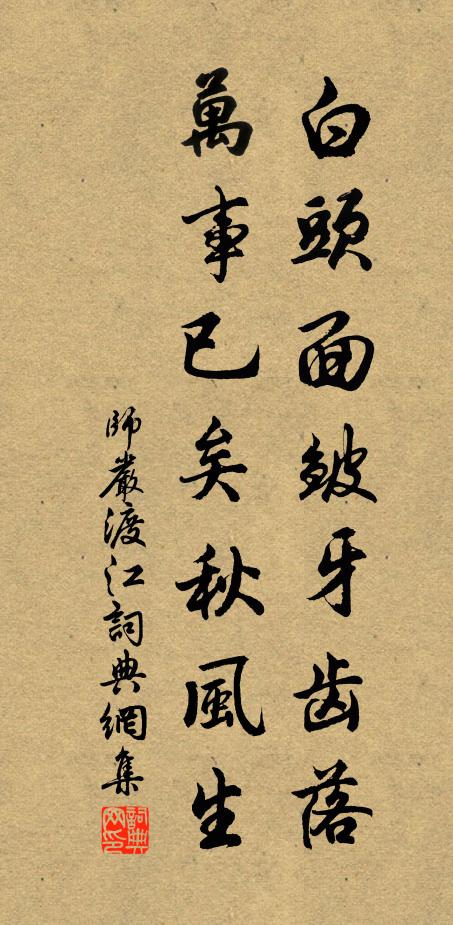 白頭面皺牙齒落
萬事已矣秋風生
師嚴渡江詞典網集
詞典网印